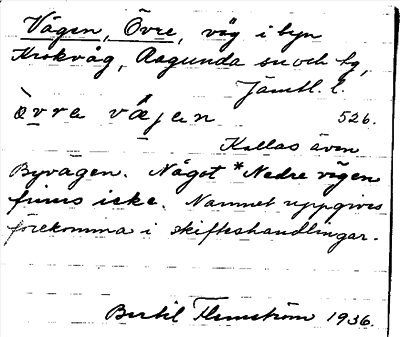 Vägen, Övre, väg i byn
Krokvåg, Ragunda sn och tg,
Jämtl. l.
òvra vä́jen 526.
Kallas även
Byvägen. Något *Nedre vägen
finns icke. Namnet uppgives
förekomma i skifteshandlingar.
Bertil Flemström 1936.